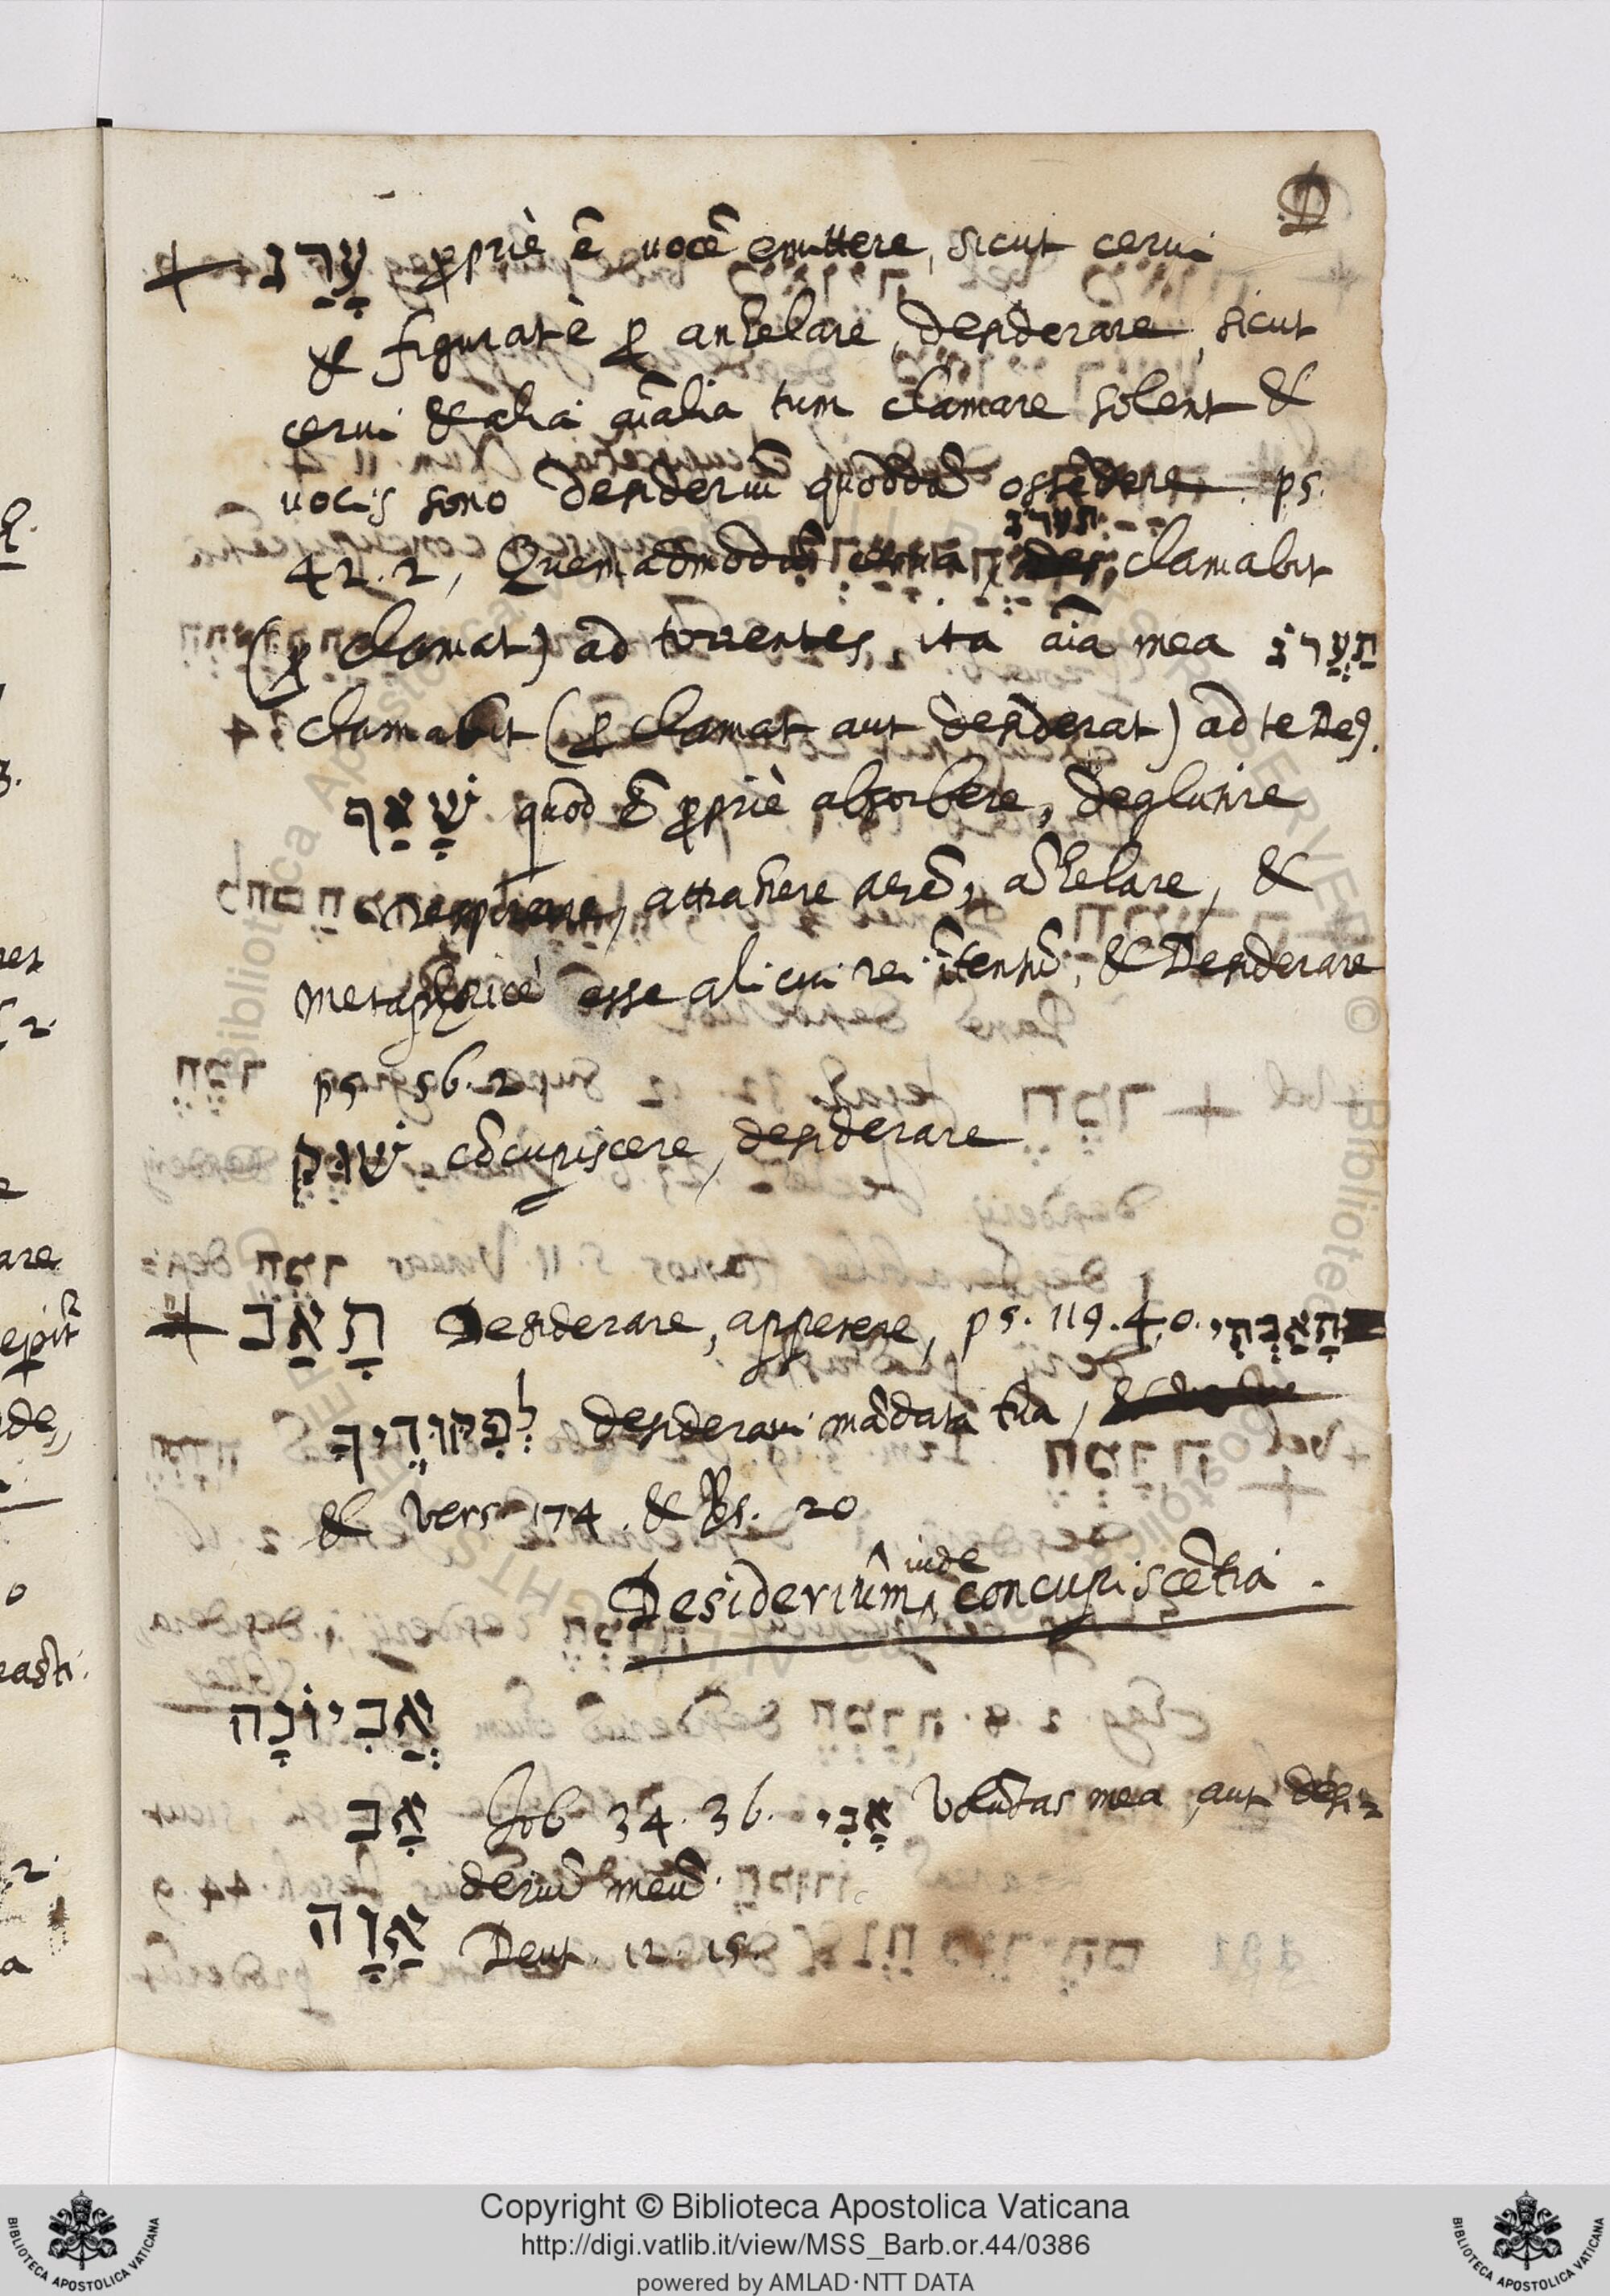 D
+ עָרַג ꝓpriè ē uocē emittere, sicut cerui
& figuratè ꝓ anhelare, desiderare, sicut
cerui & alia aīalia tum clamare solent &
uocis sono desideriū quoddā ostēdere ps.
תערג
42.2, Quemadmodū cerua, clamabit
(ꝓ clamat) ad torrentes, ita aīa mea תַעֲרֹג
clamabit (ꝓ clamat aut desiderat) ad te De9.
שָׁאַף quod ē ꝓpriè absorbere, deglutire
respirare, attrahere aerē, āhelare, &
metaphoricè esse alicui rei ītentū, & Desiderare
ps. 56.2,
שׁוּק cōcupiscere, desiderare
+ תָאַב Desiderare, appetere, ps. 119.40. תָאַבְתִּי
לְפִקּוּדֶיךָ desideraui mādata tua,
& vers 174. & Ps. 20
inde
Desiderium, concupiscētia.
אֲבִיוֹנָה
אָב Job 34.36. אָבִי Volūtas mea, aut desi=
deriū meū.
אַוָּה Deut. 12.15.
Copyright © Biblioteca Apostolica Vaticana
http://digi.vatlib.it/view/MSS_Barb.or.44/0386
powered by AMLAD·NTT DATA
BIBLIOTECA APOSTOLICA VATICANA
BIBLIOTECA APOSTOLICA VATICANA